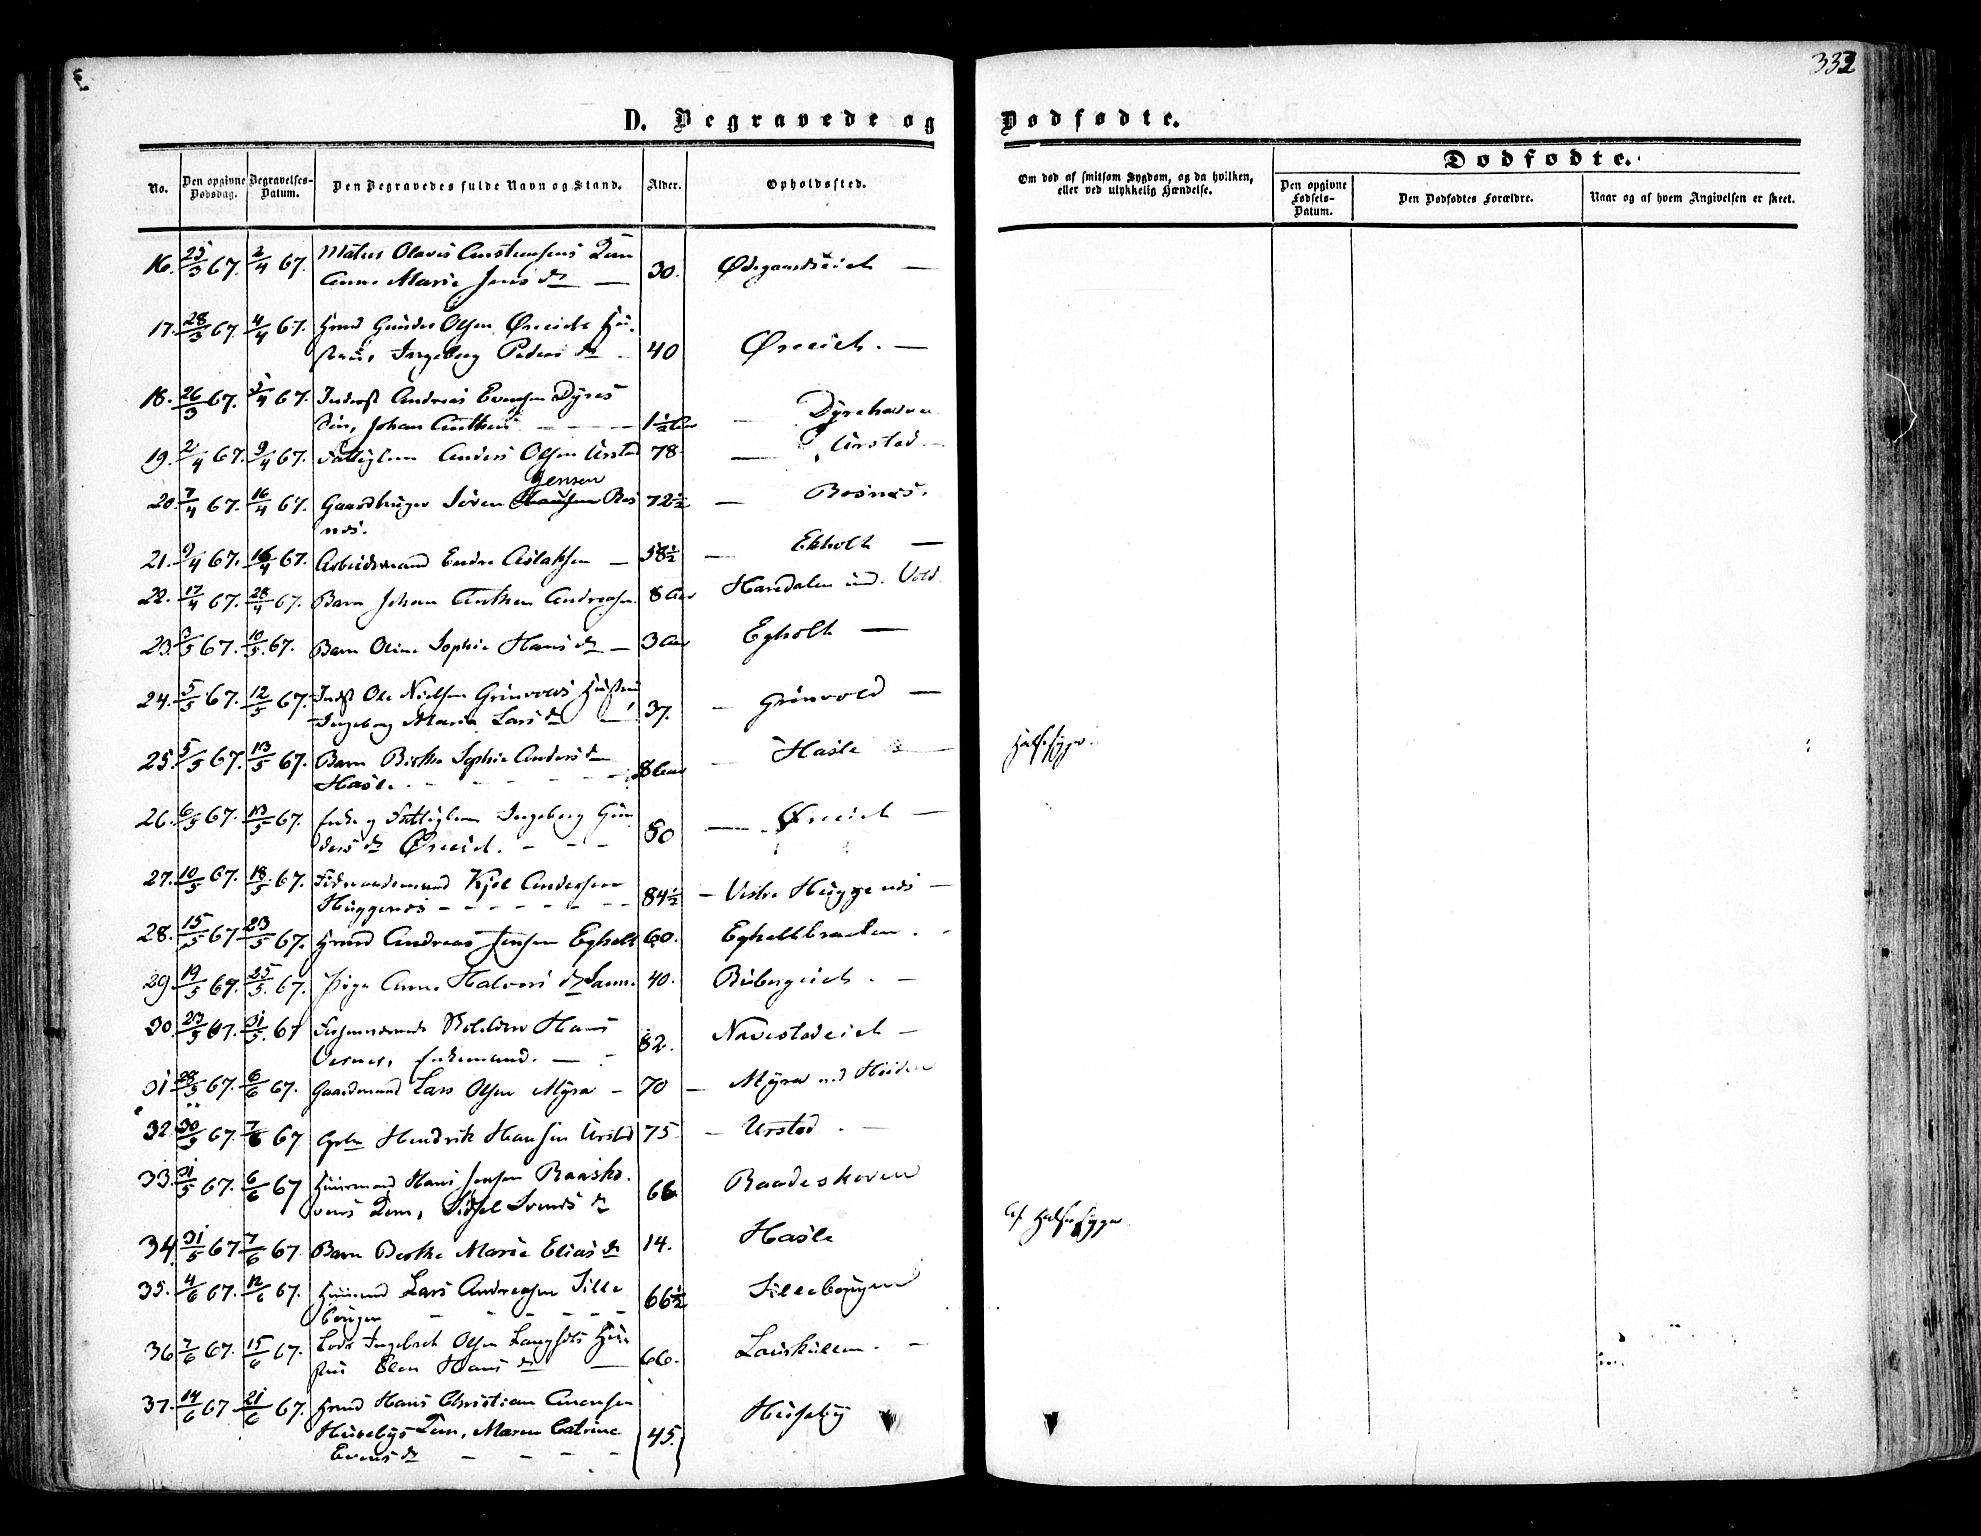 332
D. Begravede og Dødfødte.
No.
Den opgivne Dødsdag.
Begravelses-Datum.
Den Begravedes fulde Navn og Stand.
Alder.
Opholdssted.
Om død af smitsom Sygdom, og da hvilken, eller ved ulykkelig Hændelse.
Dødfødte.
Den opgivne Fødsels-Datum.
Den Dødfødtes Forældre.
Naar og af hvem Angivelsen er skeet.
16. 25/3 67. 2/4 67.
Anne Marie Jens dr — 30.
17. 28/3 67. 4/4 67. Hmd Gunder Olsen
Ingeborg Peders dr 40
18. 26/3 67. 5/4 67. Inderst Andreas Evensen Dyres
Søn, Johan Anthon — 1½ Aar — Dyrehaven
19. 2/4 67. 9/4 67. Fattiglem Anders Olsen Urstad 78 — Urstad —
Jensen
20. 7/4 67. 16/4 67. Gaardbruger Søren Hansen Bos 72½ — Bosnæs.
næs.
21. 9/4 67. 16/4 67. Arbeidsmand Endre Aslaksen — 58½ — Ekholt —
22. 17/4 67. 28/4 67. Barn Johan Anthon Andreasen 8 Aar Haredalen und. Vold
23. 3/5 67. 10/5 67. Barn Oline Sophie Hans dr — 3 Aar Egholt —
24. 5/5 67. 12/5 67. Indst Ole Nielsen Grimvolds Hustru
Ingeborg Maria Lars dr — 37. — Grimvold —
25. 5/5 67. 13/5 67. Barn Berthe Sophie Anders dr
Hasle — 8 Aar — Hasle — Halssyge
26. 6/5 67. 13/5 67. Enke og Fattiglem Ingeborg Gun
ders dr 80
27. 10/5 67. 18/5 67. Føderaadsmand Kjel Andersen
Huggenæs — 84½ — Vestre Huggenæs —
28. 15/5 67 23/5 67. Hmd Andreas Jensen Egholt 60. Egholtbraaten.
29. 19/5 67. 25/5 67. Pige Anne Halvors dr 40.
30. 23/5 67. 31/5 67 Hans
Verner, Enkemand. — 82. Navestadeich —
31 28/5 67. 6/6 67. Gaardmand Lars Olsen Myra — 70 — Myra
32. 30/5 67. 7/6 67 Hendrik Hansen Urstad 75 — Urstad. —
33. 31/5 67. 6/6 67 Huusmand Hans Jensen Raasko
vens Kone, Sidsel Svends dr 66 Raadeskoven
34. 31/5 67 7/6 67. Barn Berthe Marie Elias dr 14. Hasle Af Halssyge
35. 4/6 67. 12/6 67. Huusmd Lars Andreasen Sille
bougen — 66½ Sillebougen
36 7/6 67. 15/6 67. Lods Ingebret Olsen Hu
stru Elen Hans dr — 66. Lauskullen. —
37. 14/6 67 21/6 67. Hmd Hans Christian
Husebys Kone, Maren Catrine 45. Huseby
Evens dr —